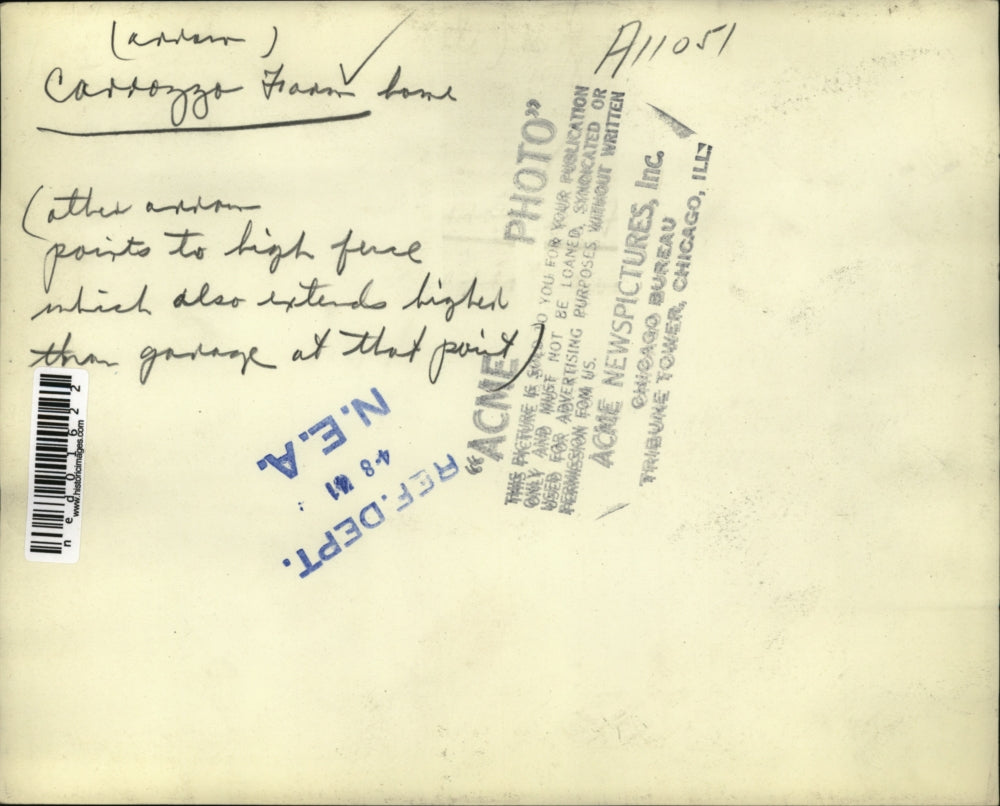 (arrow)
Carrozzo Farm home
A11051
(other arrow
points to high fence
which also extends higher
than garage at that point)
"ACME PHOTO"
THIS PICTURE IS SOLD TO YOU FOR YOUR PUBLICATION
ONLY AND MUST NOT BE LOANED, SYNDICATED OR
USED FOR ADVERTISING PURPOSES WITHOUT WRITTEN
PERMISSION FOM US.
ACME NEWSPICTURES, Inc.
CHICAGO BUREAU
TRIBUNE TOWER, CHICAGO, ILL.
N.E.A.
4-8 41
REF. DEPT.
www.historicimages.com
ned01622